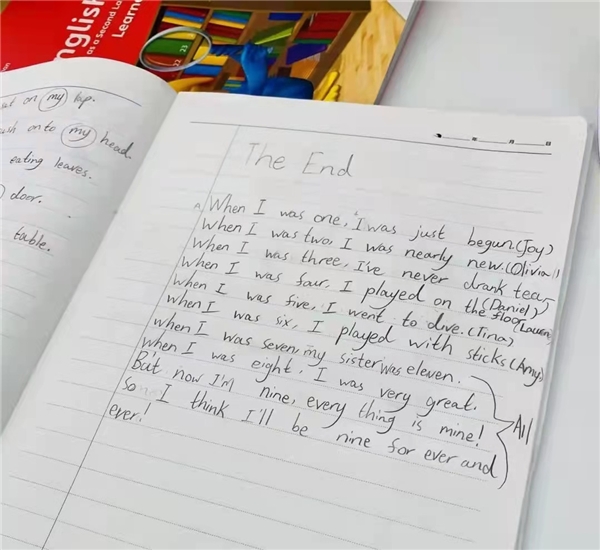 English
as a Second La
Learne
22
23
sat on my lap.
ush onto my head.
eating leaves.
door.
table.
年 月 日
The End
When I was one, I was just begun.(Joy)
When I was two, I was nearly new.(Olivia)
When I was three, I've never drank tear
When I was four, I played on the floor(Lauren)
(Daniel)
When I was five, I went to dive.(Tina)
When I was six, I played with sticks(Amy)
when I was seven, my sister was eleven.
when I was eight, I was very great.
But now I'm nine, every thing is mine!
So I think I'll be nine for ever and
ever!
All